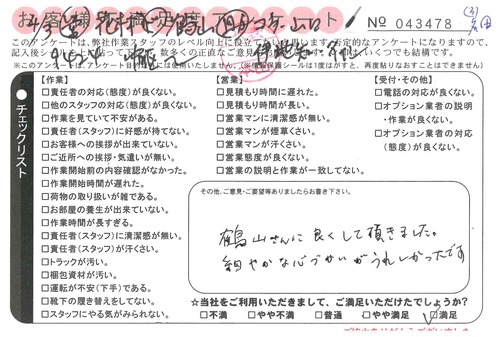 Nº 043478
このアンケートは、弊社作業スタッフのレベル向上に役立て
※このアンケートは、アンケート目的以外には使用いたしません。(※情報保護シールは1度がはすと、再度貼りなおすことはできません)
チェックリスト
【作業】
□責任者の対応(態度)が良くない。
□他のスタッフの対応(態度)が良くない。
□作業を見ていて不安がある。
□責任者(スタッフ)に好感が持てない。
□お客様への挨拶が出来ていない。
□ご近所への挨拶・気遣いが無い。
□作業開始前の内容確認がなかった。
□作業開始時間が遅れた。
□荷物の取り扱いが雑である。
□お部屋の養生が出来ていない。
□作業時間が長すぎる。
□責任者(スタッフ)に清潔感が無い。
□責任者(スタッフ)が汗くさい。
□トラックが汚い。
□梱包資材が汚い。
□運転が不安(下手)である。
□靴下の履き替えをしてない。
□スタッフにやる気がみられない。
【営業】
□見積もり時間に遅れた。
□見積もり時間が長い。
□営業マンに清潔感が無い。
□営業マンが煙草くさい。
□営業マンが汗くさい。
□営業態度が良くない。
□営業の説明と作業が一致してない。
【受付・その他】
□電話の対応が良くない。
□オプション業者の説明
・作業が良くない。
□オプション業者の対応
(態度)が良くない。
その他、ご意見・ご要望等ありましたらお書き下さい。
鶴山さんに良くして頂きました。
細やかな心づかいがうれしかったです
☆当社をご利用いただきまして、ご満足いただけたでしょうか?
□不満 □やや不満 □普通 □やや満足 □満足